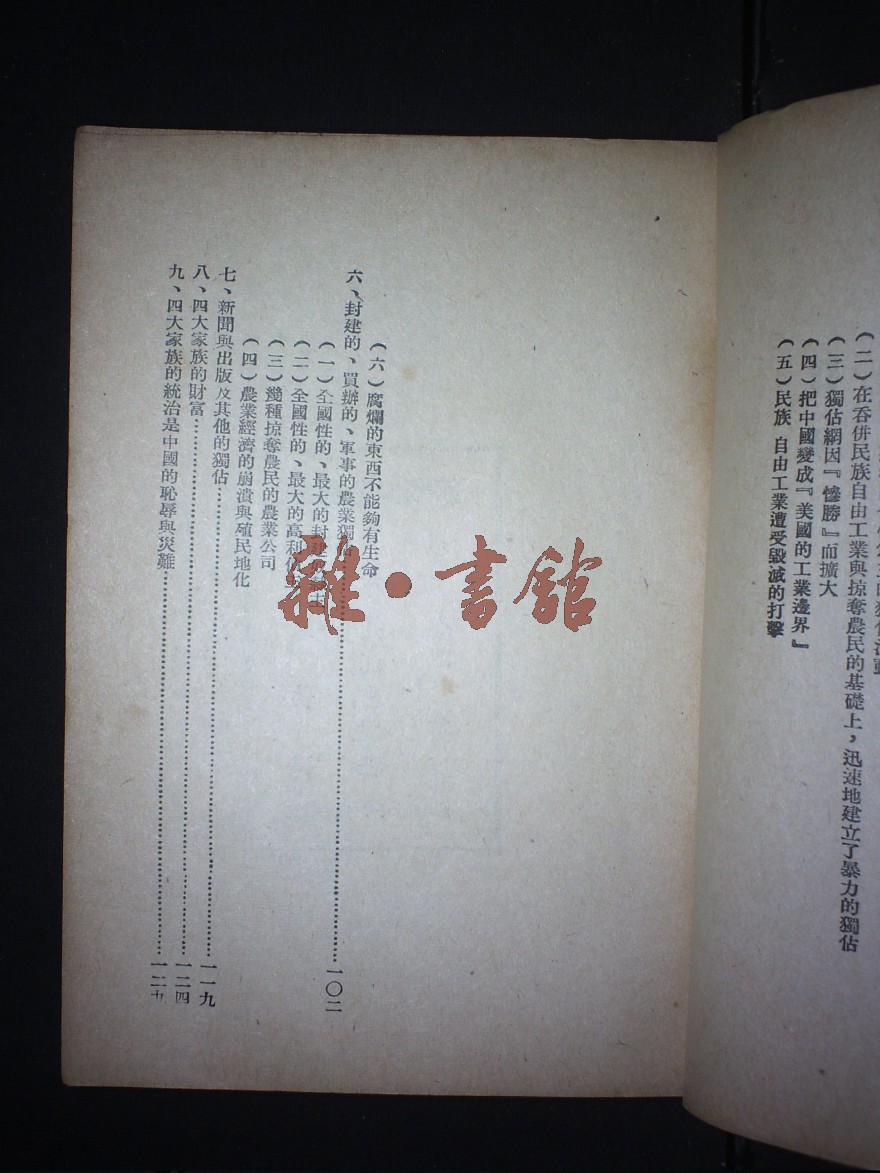 (二)在吞併民族自由工業與掠奪農民的基礎上,迅速地建立了暴力的獨佔
(三)獨佔網因『慘勝』而擴大
(四)把中國變成『美國的工業邊界』
(五)民族 自由工業遭受毀滅的打擊
(六)腐爛的東西不能夠有生命
六、封建的、買辦的、軍事的農業獨…………一〇二
(一)全國性的、最大的封建
(二)全國性的、最大的高利
(三)幾種掠奪農民的農業公司
(四)農業經濟的崩潰與殖民地化
七、新聞與出版及其他的獨佔…………一一九
八、四大家族的財富…………一二四
九、四大家族的統治是中國的恥辱與災難…………一二九
雜·書舘